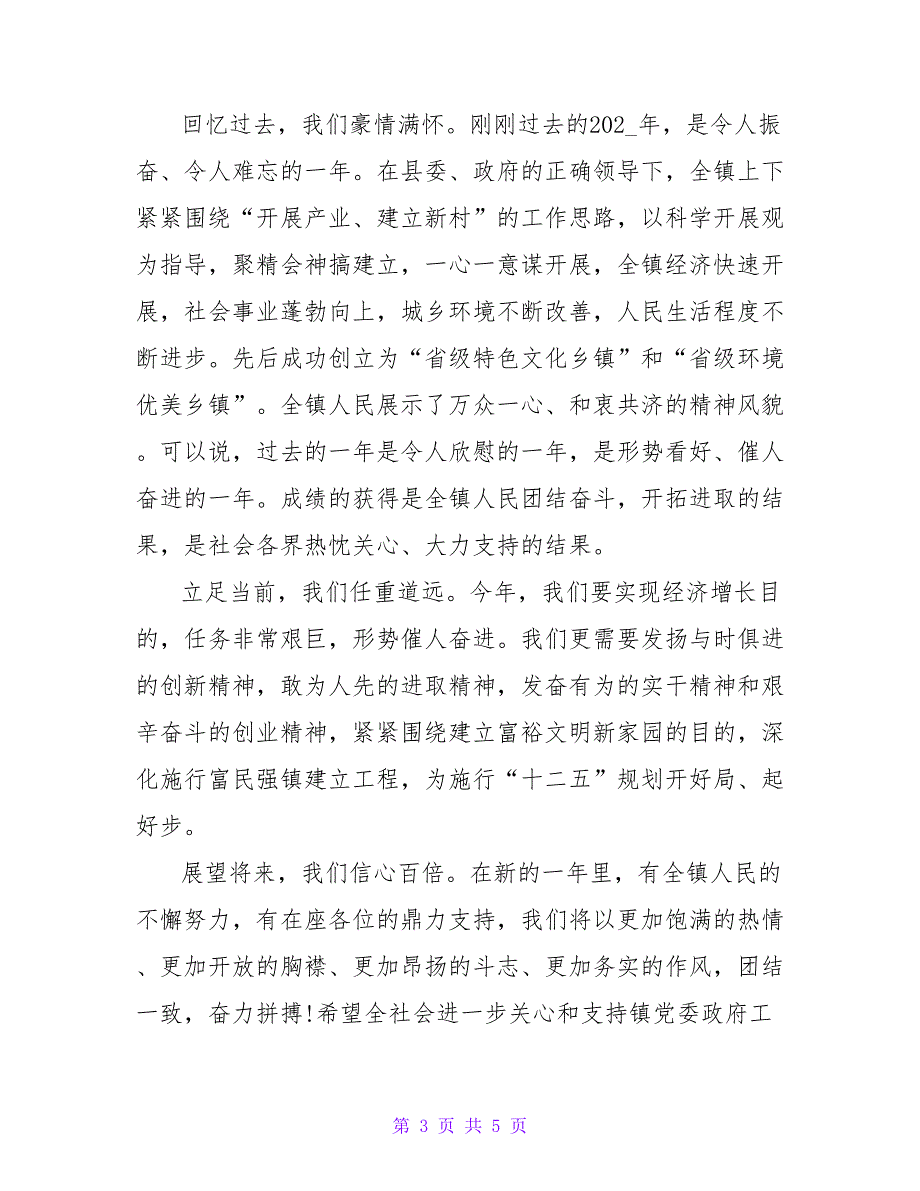 回忆过去，我们豪情满怀。刚刚过去的202_年，是令人振
奋、令人难忘的一年。在县委、政府的正确领导下，全镇上下
紧紧围绕“开展产业、建立新村”的工作思路，以科学开展观
为指导，聚精会神搞建立，一心一意谋开展，全镇经济快速开
展，社会事业蓬勃向上，城乡环境不断改善，人民生活程度不
断进步。先后成功创立为“省级特色文化乡镇”和“省级环境
优美乡镇”。全镇人民展示了万众一心、和衷共济的精神风貌
。可以说，过去的一年是令人欣慰的一年，是形势看好、催人
奋进的一年。成绩的获得是全镇人民团结奋斗，开拓进取的结
果，是社会各界热忱关心、大力支持的结果。
立足当前，我们任重道远。今年，我们要实现经济增长目
的，任务非常艰巨，形势催人奋进。我们更需要发扬与时俱进
的创新精神，敢为人先的进取精神，发奋有为的实干精神和艰
辛奋斗的创业精神，紧紧围绕建立富裕文明新家园的目的，深
化施行富民强镇建立工程，为施行“十二五”规划开好局、起
好步。
展望将来，我们信心百倍。在新的一年里，有全镇人民的
不懈努力，有在座各位的鼎力支持，我们将以更加饱满的热情
、更加开放的胸襟、更加昂扬的斗志、更加务实的作风，团结
一致，奋力拼搏!希望全社会进一步关心和支持镇党委政府工
第 3 页 共 5 页